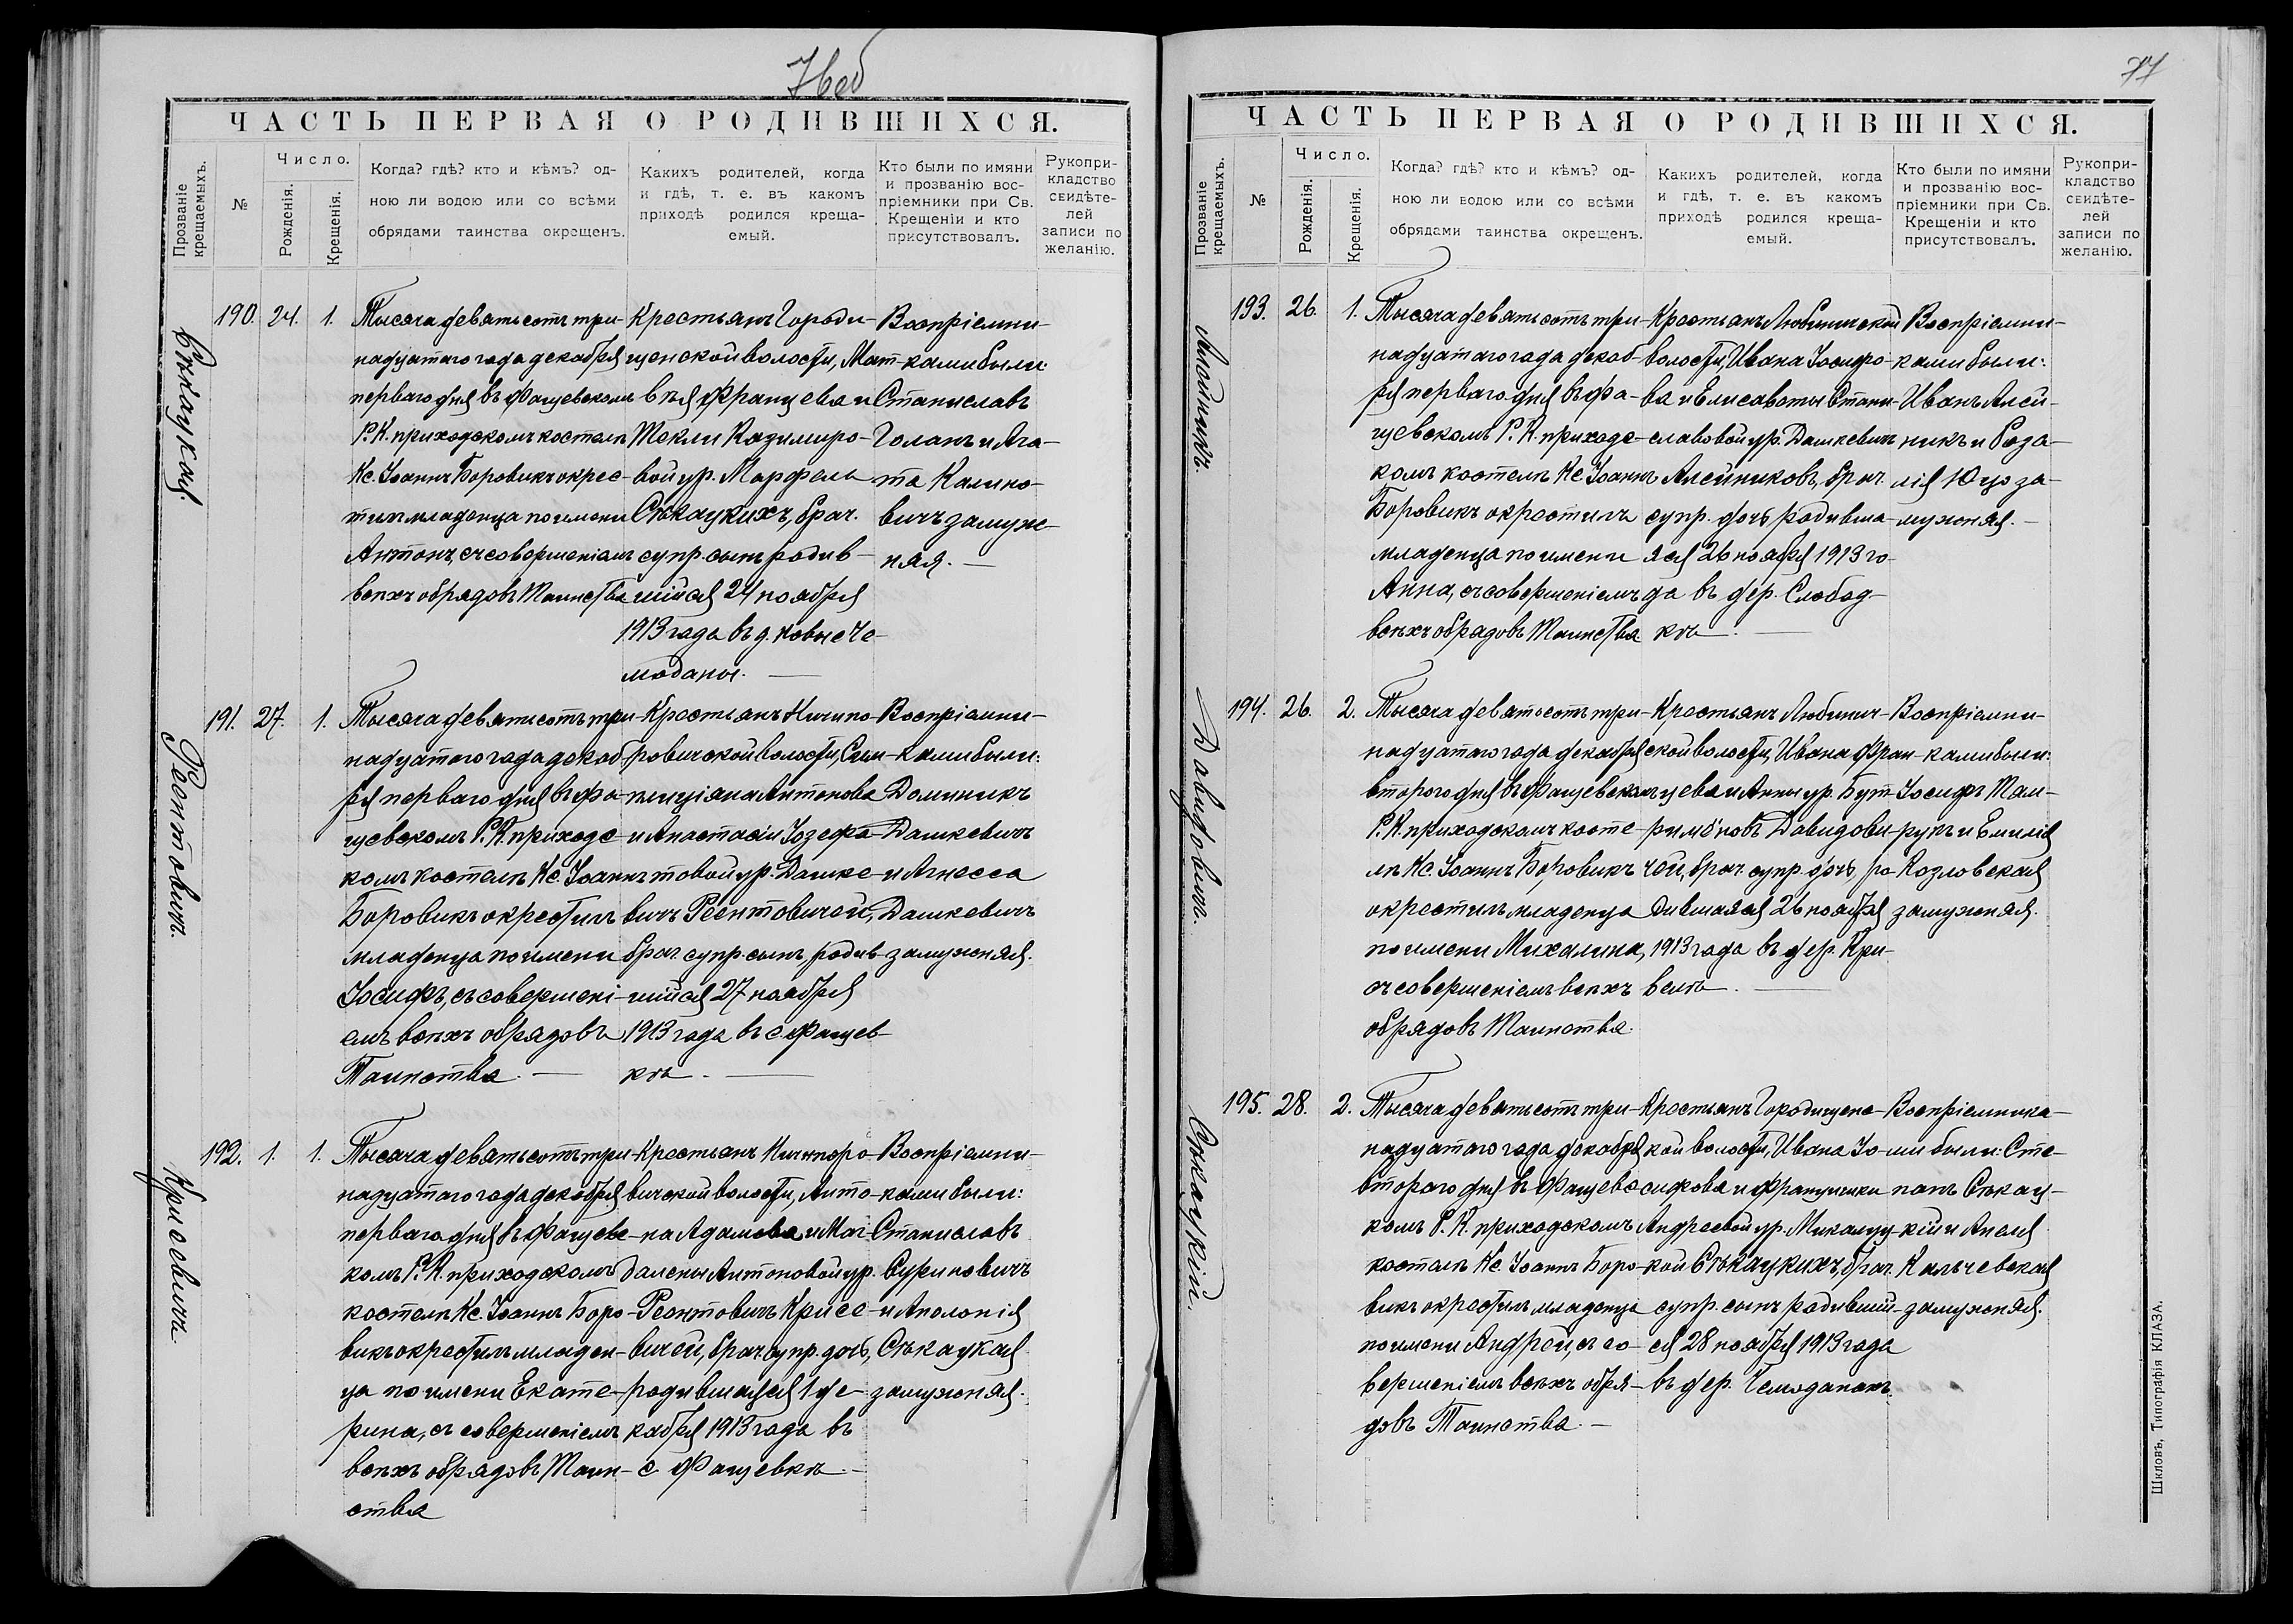 76об
ЧАСТЬ ПЕРВАЯ О РОДИВШИХСЯ.
Прозваніе крещаемыхъ.
№
Число.
Рожденія.
Крещенія.
Когда? гдѣ? кто и кѣмъ? од-
ною ли водою или со всѣми
обрядами таинства окрещенъ.
Какихъ родителей, когда
и гдѣ, т. е. въ какомъ
приходѣ родился креща-
емый.
Кто были по имяни
и прозванію вос-
пріемники при Св.
Крещеніи и кто
присутствовалъ.
Рукопри-
кладство
свидѣте-
лей
записи по
желанію.
190. 24. 1.
Тысяча девятьсотъ три-
надцатаго года декабря
перваго дня въ Фащевскомъ
Р. К. приходскомъ костелѣ
Кс. Іоаннъ Боровикъ окрес-
тилъ младенца по имени
Антонъ, съ совершеніемъ
всѣхъ обрядовъ Таинства
Крестьянъ Городи-
щенской волости, Мат-
вѣя Францева и
Текли Кадимиро-
вой ур. Марфель
Сѣкацкихъ, брач.
супр. сынъ родив-
шійся 24 ноября
1913 года въ д. Новые Че-
моданы.
Воспріемни-
ками были:
Станиславъ
Голанъ и Ага-
та Калино-
вичъ замуж-
няя.
191. 27. 1.
Реентовичъ.
Тысяча девятьсотъ три-
надцатаго года декаб-
ря перваго дня въ Фа-
щевскомъ Р. К. приходс-
комъ костелѣ Кс. Іоаннъ
Боровикъ окрестилъ
младенца по имени
Іосифъ, съ совершені-
емъ всѣхъ обрядовъ
Таинства.
Крестьянъ Ничипо-
ровичской волости,
и Анастасіи Іозефа-
товой ур. Дашке-
вичъ Реентовичей,
брач. супр. сынъ, родив-
шійся 27 ноября
1913 года въ с. Фащев-
кѣ.
Воспріемни-
ками были:
Доминикъ
Дашкевичъ
и Агнесса
Дашкевичъ
замужняя.
192. 1. 1.
Крисевичъ.
Тысяча девятьсотъ три-
надцатаго года декабря
перваго дня въ Фащевс-
комъ Р. К. приходскомъ
костелѣ Кс. Іоаннъ Боро-
викъ окрестилъ младен-
ца по имени Екате-
рина, съ совершеніемъ
всѣхъ обрядовъ Таин-
ства
Крестьянъ Ничипоро-
вичской волости, Анто-
на Адамова и Маг-
далены Антоновой ур.
Реентовичъ Крисе-
вичей, брач. супр. дочь,
родившаяся 1 де-
кабря 1913 года въ
с. Фащевкѣ.
Воспріемни-
ками были:
Станиславъ
Суриновичъ
и Аполонія
Сѣкацкая
замужняя.
77
ЧАСТЬ ПЕРВАЯ О РОДИВШИХСЯ.
Прозваніе крещаемыхъ.
№
Число.
Рожденія.
Крещенія.
Когда? гдѣ? кто и кѣмъ? од-
ною ли водою или со всѣми
обрядами таинства окрещенъ.
Какихъ родителей, когда
и гдѣ, т. е. въ какомъ
приходѣ родился креща-
емый.
Кто были по имяни
и прозванію вос-
пріемники при Св.
Крещеніи и кто
присутствовалъ.
Рукопри-
кладство
свидѣте-
лей
записи по
желанію.
193. 26. 1.
Тысяча девятьсотъ три-
надцатаго года декаб-
ря перваго дня въ Фа-
щевскомъ Р. К. приходс-
комъ костелѣ Кс. Іоаннъ
Боровикъ окрестилъ
младенца по имени
Анна, съ совершеніемъ
всѣхъ обрядовъ Таинства
Крестьянъ Любиничской
волости, Ивана Іосифо-
ва и Елисаветы Стани-
славовой ур. Дашкевичъ
Алейниковъ, брач.
супр. дочь родивша-
яся 26 ноября 1913 го-
да въ дер. Слобод-
кѣ.
Воспріемни-
ками были:
Иванъ Алей-
никъ и Роза-
лія Юцо за-
мужняя.
194. 26. 2.
Давидовичъ.
Тысяча девятьсотъ три-
надцатаго года декабря
второго дня въ Фащевскомъ
Р. К. приходскомъ косте-
лѣ Кс. Іоаннъ Боровикъ
окрестилъ младенца
по имени Михалина,
съ совершеніемъ всѣхъ
обрядовъ Таинства.
Крестьянъ Любинич-
ской волости, Ивана Фран-
цева и Анны ур. Бут-
римовъ Давидови-
чей, брач. супр. дочь, ро-
дившаяся 26 ноября
1913 года въ дер. Кри-
вель.
Воспріемни-
ками были:
Іосифъ
и Емилія
Козловская
замужняя.
195. 28. 2.
Сѣкацкій.
Тысяча девятьсотъ три-
надцатаго года декабря
второго дня въ Фащевс-
комъ Р. К. приходскомъ
костелѣ Кс. Іоаннъ Боро-
викъ окрестилъ младенца
по имени Андрей, съ со-
вершеніемъ всѣхъ обря-
довъ Таинства.
Крестьянъ Городищенс-
кой волости, Ивана Іо-
сифова и Францишки
Андреевой ур. Микалуц-
кой Сѣкацкихъ, брач.
супр. сынъ родившій-
ся 28 ноября 1913 года
въ дер. Чемоданахъ.
Воспріемника-
ми были: Сте-
панъ Сѣкац-
кій и Анеля
Кальчевская
замужняя.
Шкловъ, Типографія КЛАЗА.